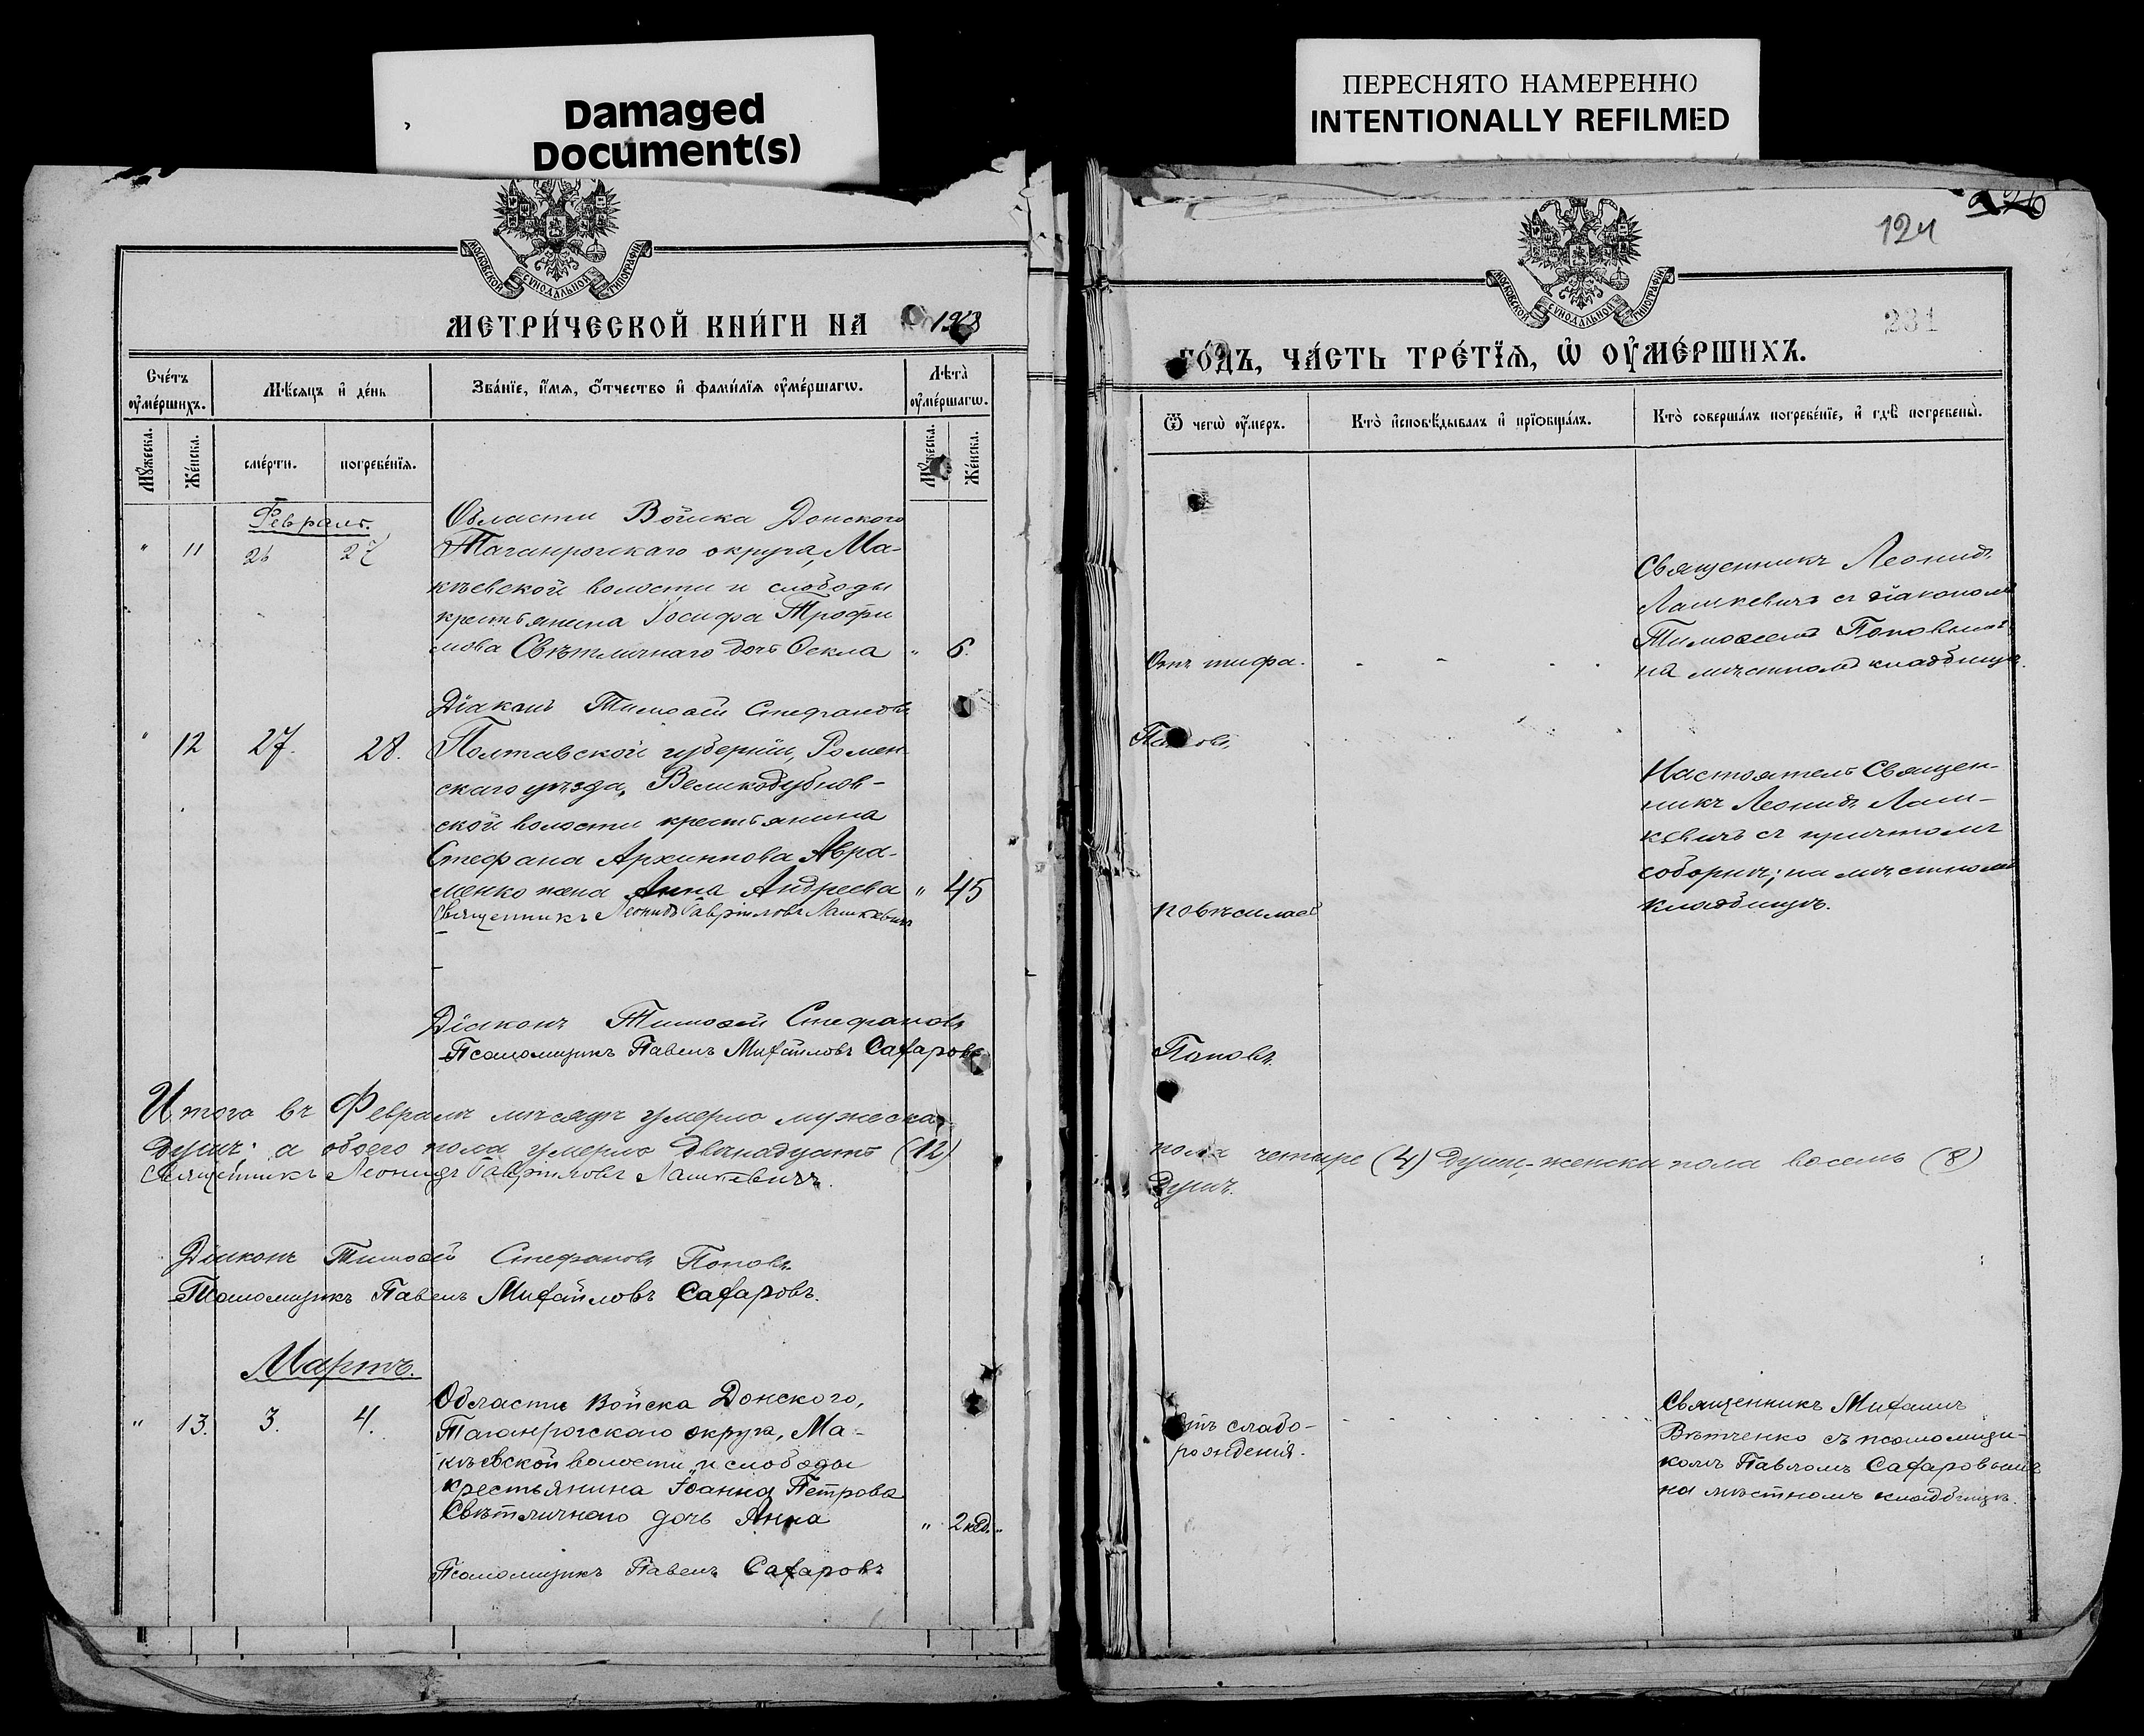 Damaged
Document(s)
ПЕРЕСНЯТО НАМЕРЕННО
INTENTIONALLY REFILMED
124
МОСКОВСКОЙ СУНОДАЛЬНОЙ ТИПОГРАФІИ
МЕТРИ́ЧЕСКОЙ КНИ́ГИ НА
Сче́тъ ᲂу҆ме́ршихъ.
Мѣ́сяцъ и҆ де́нь
Зва́нїе, и҆́мя, ѻ҆́тчество и҆ фами́лїя ᲂу҆ме́ршагѡ.
Лѣ́та ᲂу҆ме́ршагѡ.
Мꙋ́жеска.
Же́нска.
сме́рти.
погребе́нїя.
Мꙋ́жеска.
Же́нска.
Февраль.
" 11 26 27
Области Войска Донского
Таганрогскаго округа, Ма-
кѣевской волости и слободы
крестьянина Іосифа Трофи
мова Свѣтличнаго дочь Ѳекла " 6.
Діаконъ Тимоѳей Стефановъ
" 12 27. 28. Полтавской губерніи, Ромен
скаго уѣзда, Великобубнов-
ской волости крестьянина
Стефана Архиппова Авра-
менко жена Анна Андреева " 45
Священникъ Леонидъ Гавріиловъ Лашкевичъ
Діаконъ Тимоѳей Стефановъ
Псаломщикъ Павелъ Михаиловъ Сафаровъ
Итого въ Февралѣ мѣсяцѣ умерло мужеска
душъ; а обоего пола умерло двѣнадцать (12)
Священникъ Леонидъ Гавріиловъ Лашкевичъ.
Діаконъ Тимоѳей Стефановъ Поповъ.
Псаломщикъ Павелъ Михаиловъ Сафаровъ.
Мартъ.
" 13. 3. 4. Области Войска Донского,
Таганрогскаго округа, Ма-
кѣевской волости и слободы
крестьянина Іоанна Петрова
Свѣтличнаго дочь Анна " 2 нед.
Псаломщикъ Павелъ Сафаровъ
МОСКОВСКОЙ СУНОДАЛЬНОЙ ТИПОГРАФІИ
231
ГО́ДЪ, ЧА́СТЬ ТРЕ́ТЇЯ, Ѡ҆ ОУ҆МЕ́РШИХЪ.
Ѿ чегѡ̀ ᲂу҆́меръ.
Кто̀ и҆сповѣ́дывалъ и҆ прїѡбща́лъ.
Кто̀ соверша́лъ погребе́нїе, и҆ гдѣ̀ погребены̀.
Священникъ Леонидъ
Лашкевичъ съ діакономъ
Тимоѳеемъ Поповымъ,
Отъ тифа. на мѣстномъ кладбищѣ.
Поповъ.
Настоятель Священ-
никъ Леонидъ Лаш-
кевичъ съ причтомъ
соборнѣ; на мѣстномъ
повѣсилась кладбищѣ.
Поповъ.
пола четыре (4) души,-женска пола восемь (8)
душъ.
Отъ слабо-
рожденія.
Священникъ Михаилъ
Вѣтченко съ псаломщи-
комъ Павломъ Сафаровымъ
на мѣстномъ кладбищѣ.